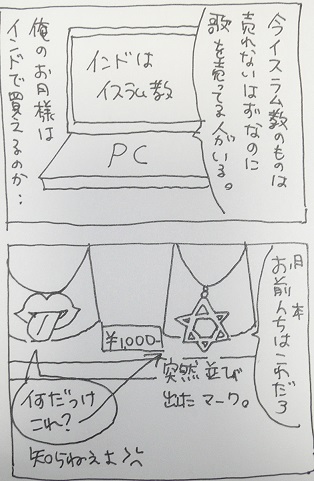 今イスラム数のものは
売れないはずなのに
歌を売ってる人がいる。
インドは
イスラム教
PC
俺のお月様は
インドで買えるのか…
月本
お前んちはこれだろ
¥1,000-
突然並び
出たマーク。
何だっけ
これ?
知らねえよ